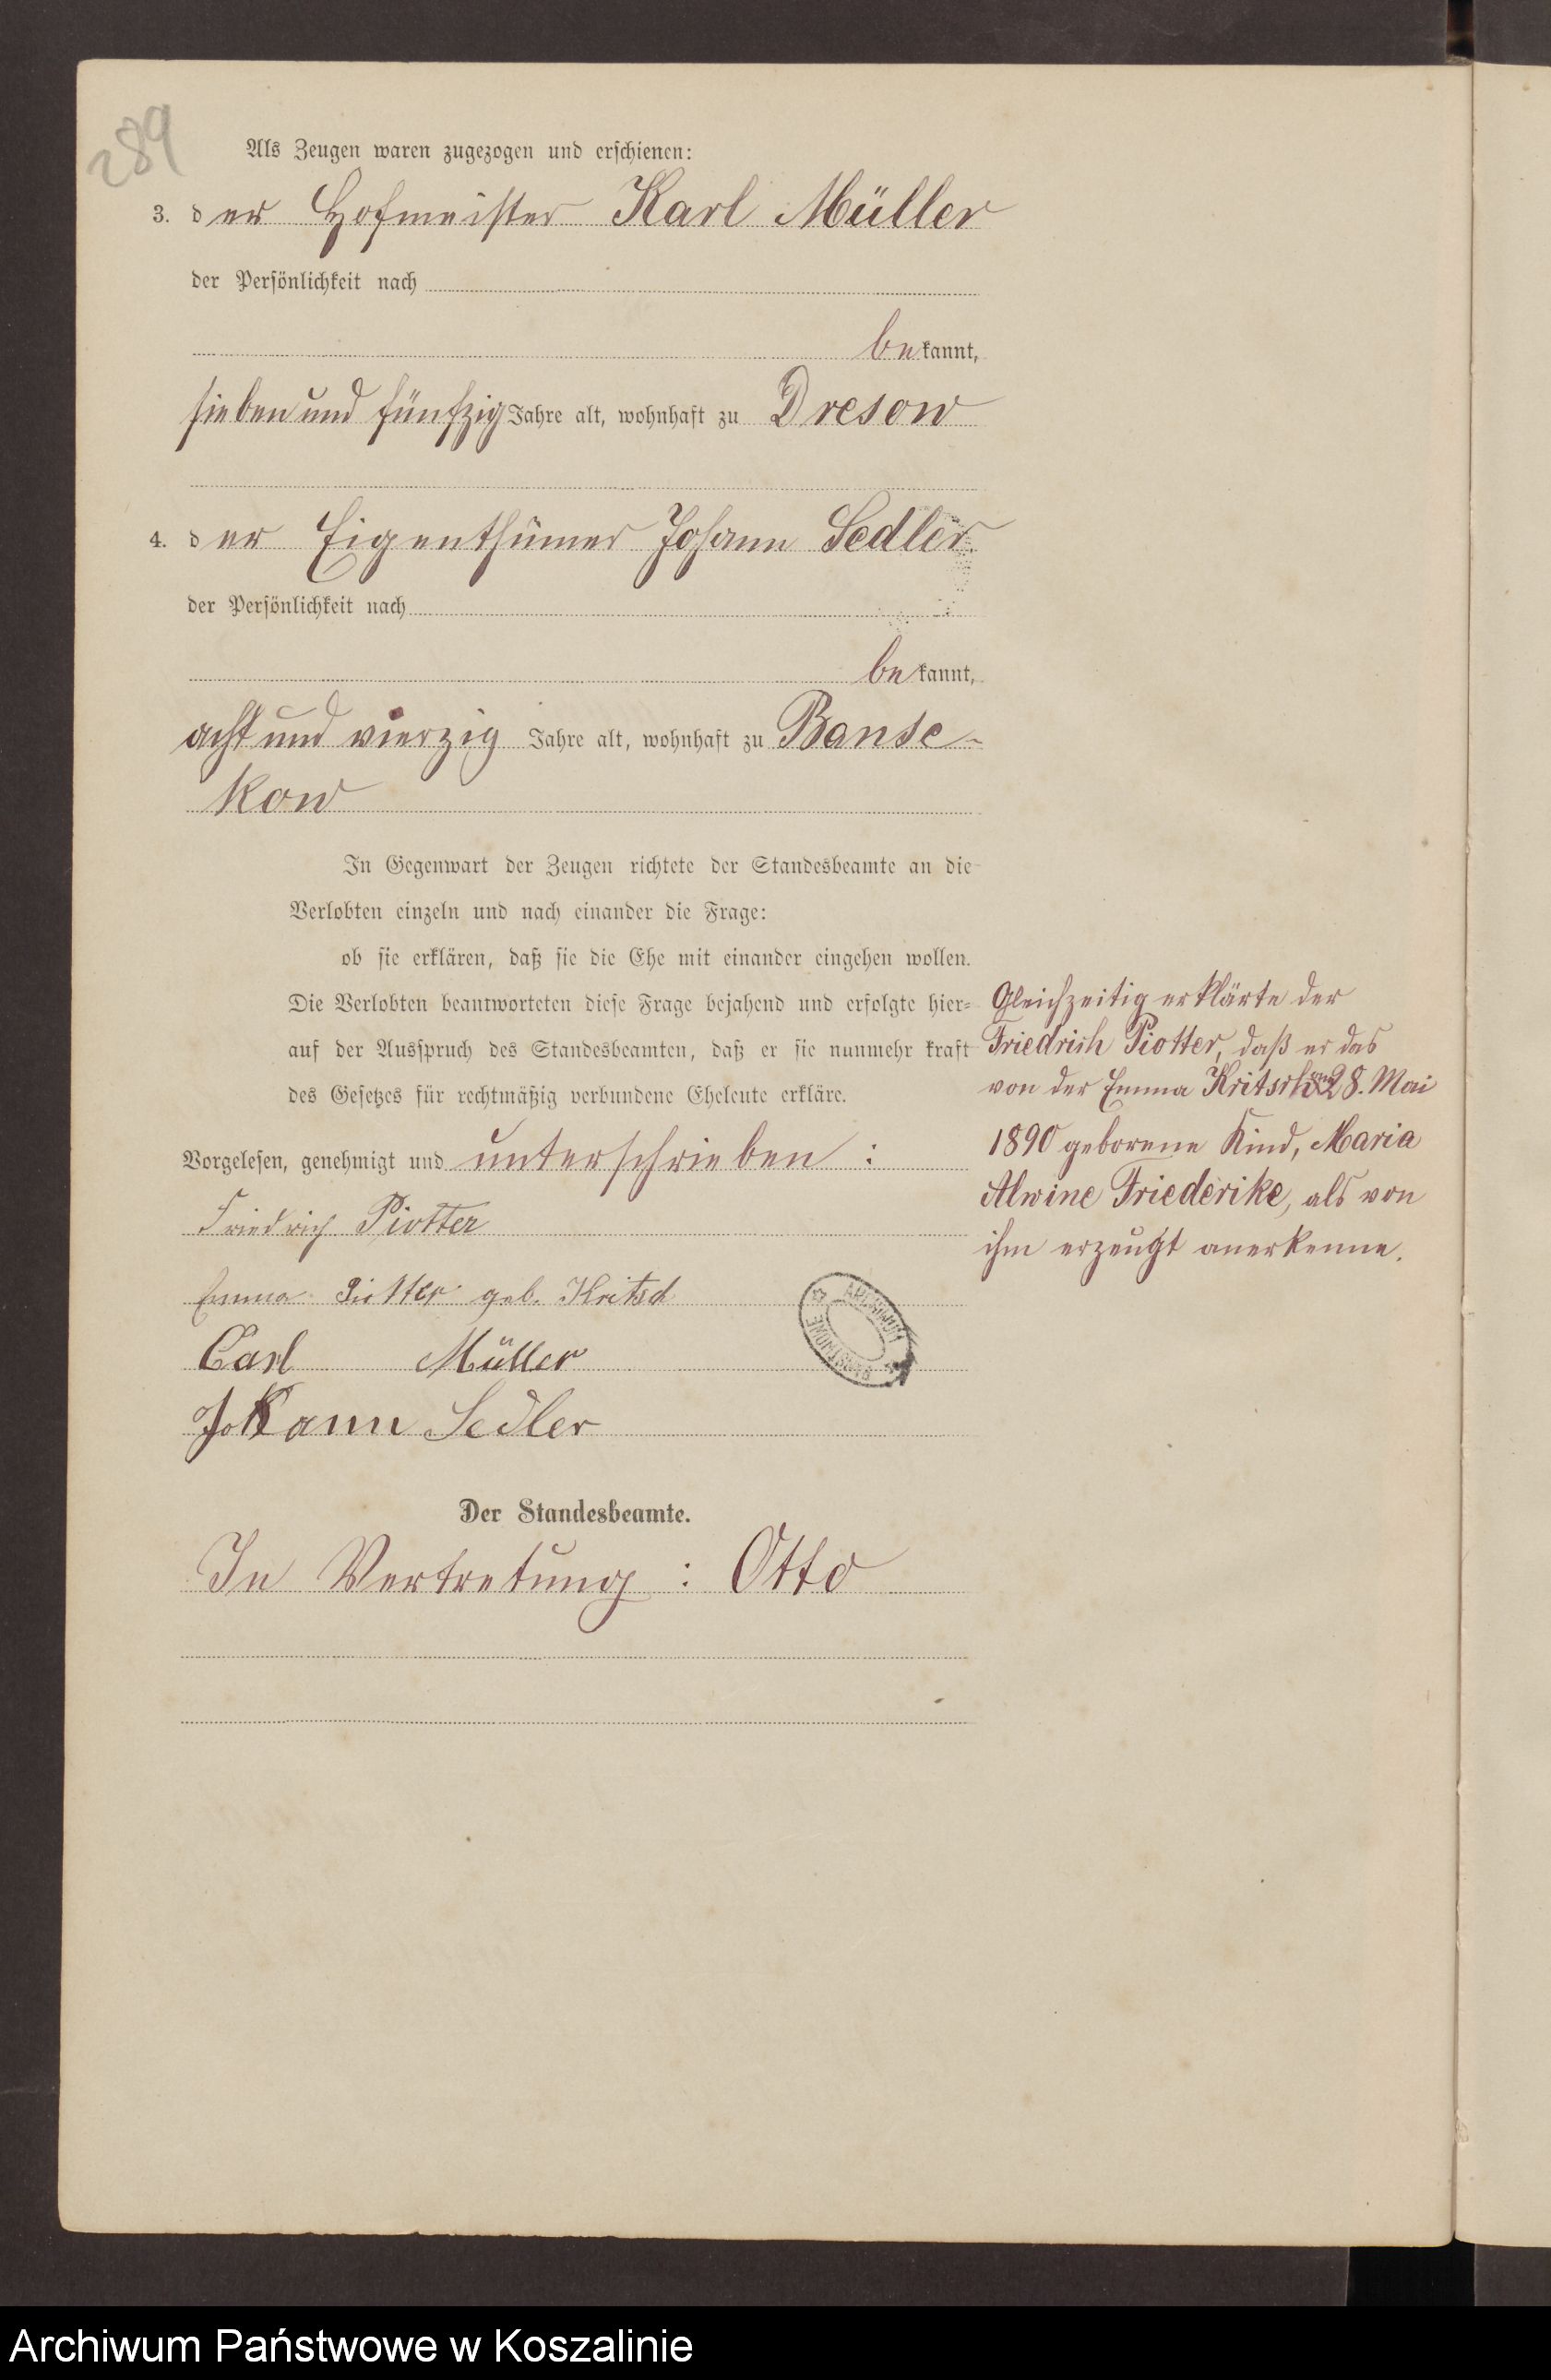 289
Als Zeugen waren zugezogen und erschienen:
3. der Hofmeister Karl Müller
der Persönlichkeit nach
bekannt,
sieben und fünfzig Jahre alt, wohnhaft zu Dresow
4. der Eigenthümer Johann Sedler
der Persönlichkeit nach
bekannt,
acht und vierzig Jahre alt, wohnhaft zu Banse-
kow
In Gegenwart der Zeugen richtete der Standesbeamte an die
Verlobten einzeln und nach einander die Frage:
ob sie erklären, daß sie die Ehe mit einander eingehen wollen.
Die Verlobten beantworteten diese Frage bejahend und erfolgte hier-
auf der Ausspruch des Standesbeamten, daß er sie nunmehr kraft
des Gesetzes für rechtmäßig verbundene Eheleute erkläre.
Vorgelesen, genehmigt und unterschrieben:
Friedrich Piotter
Emma Piotter geb. Kritsch
Carl Müller
Johann Sedler
Der Standesbeamte.
In Vertretung: Otto
Gleichzeitig erklärte der
Friedrich Piotter, daß er das
von der Emma Kritsch am 28. Mai
1890 geborene Kind, Maria
Alwine Friederike, als von
ihm erzeugt anerkenne.
ARCHIWUM PAŃSTWOWE
Archiwum Państwowe w Koszalinie